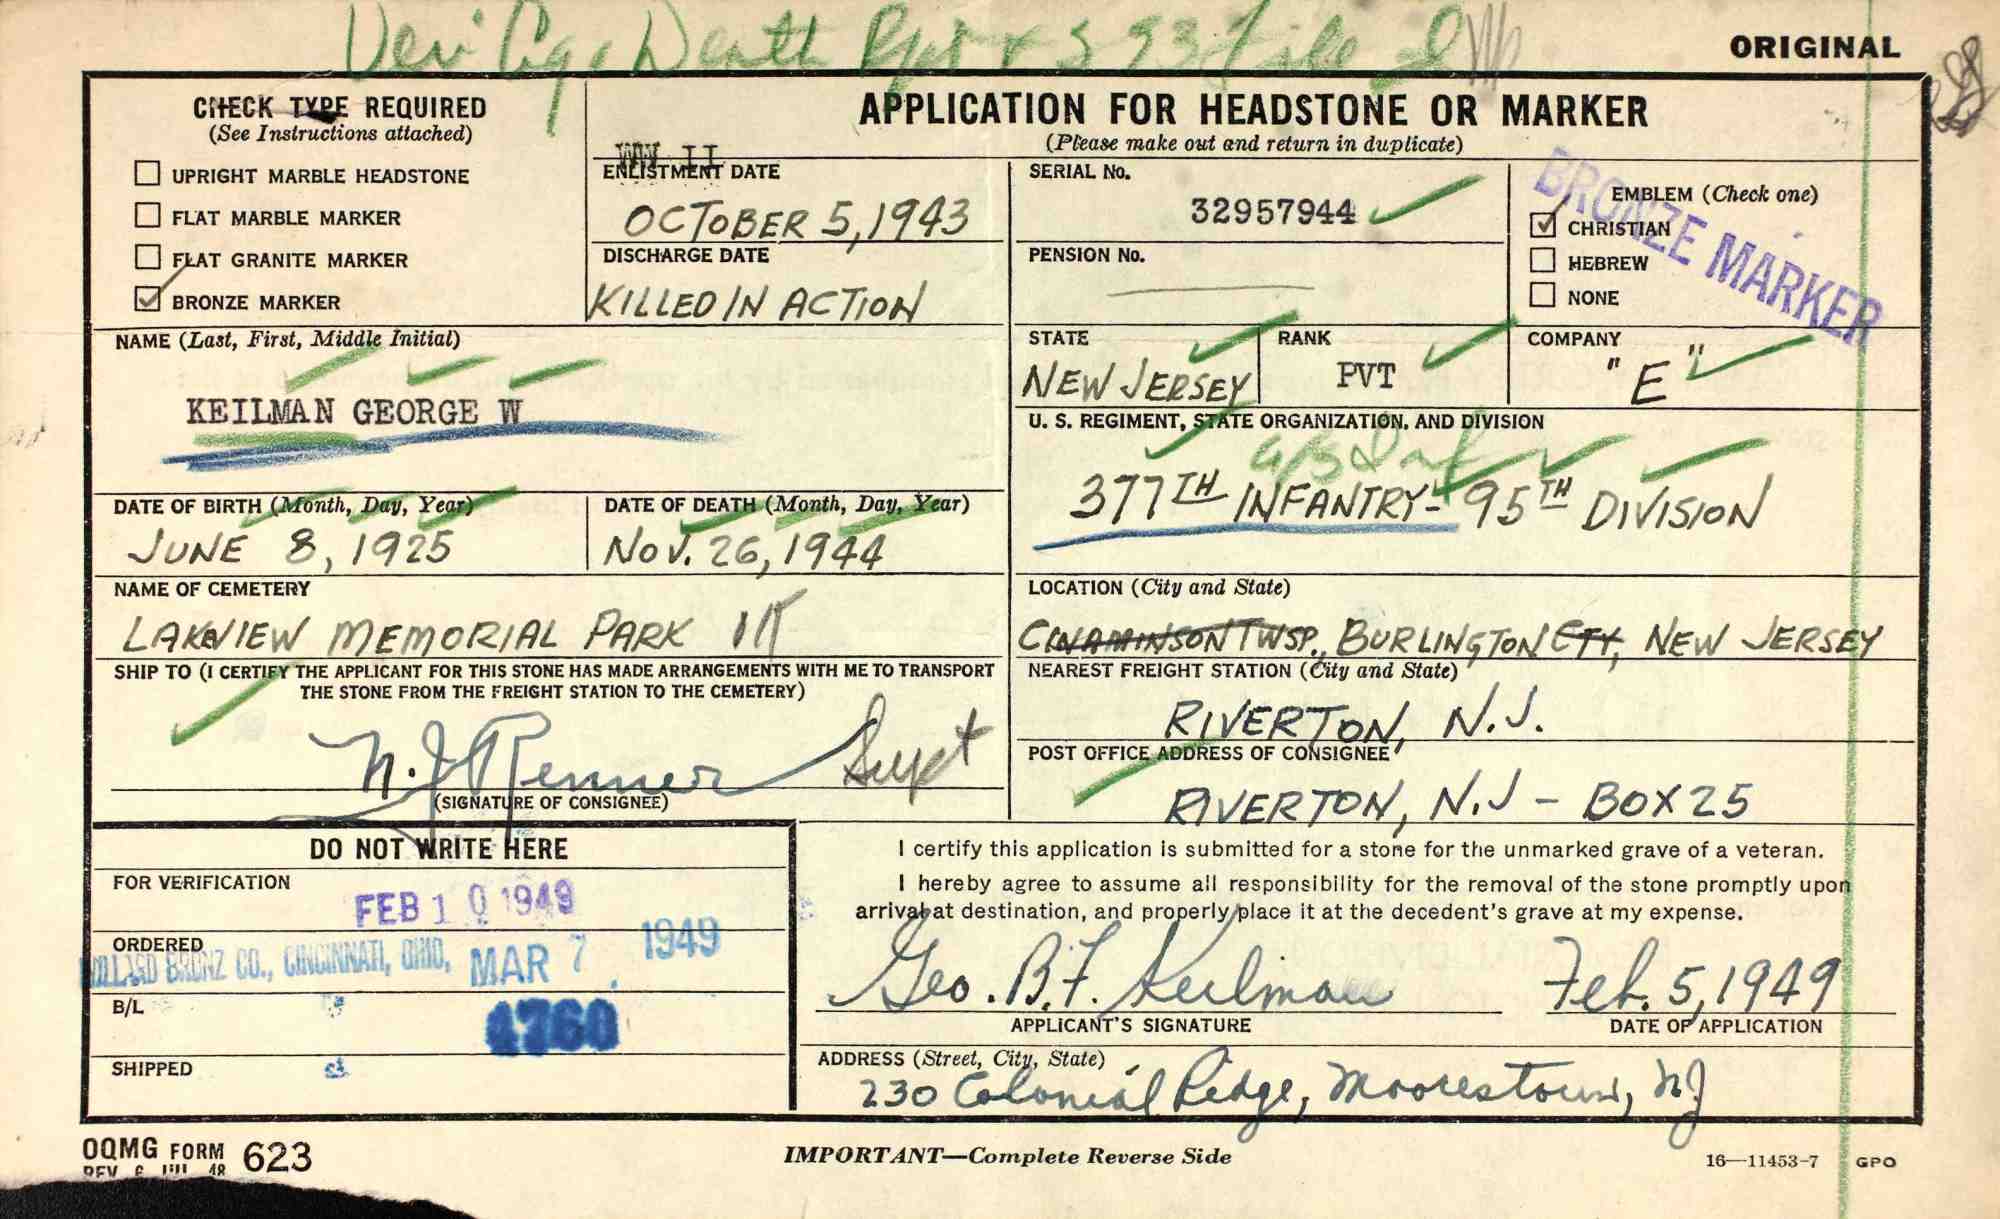 ORIGINAL
CHECK TYPE REQUIRED
(See Instructions attached)
UPRIGHT MARBLE HEADSTONE
FLAT MARBLE MARKER
FLAT GRANITE MARKER
BRONZE MARKER
APPLICATION FOR HEADSTONE OR MARKER
(Please make out and return in duplicate)
WW II
ENLISTMENT DATE
OCTOBER 5, 1943
DISCHARGE DATE
KILLED IN ACTION
SERIAL No.
32957944
PENSION No.
EMBLEM (Check one)
CHRISTIAN
HEBREW
NONE
BRONZE MARKER
NAME (Last, First, Middle Initial)
KEILMAN GEORGE W
STATE
NEW JERSEY
RANK
PVT
COMPANY
"E"
U. S. REGIMENT, STATE ORGANIZATION, AND DIVISION
377TH INFANTRY - 95TH DIVISION
DATE OF BIRTH (Month, Day, Year)
JUNE 8, 1925
DATE OF DEATH (Month, Day, Year)
NOV. 26, 1944
NAME OF CEMETERY
LAKEVIEW MEMORIAL PARK
LOCATION (City and State)
CINAMINSON TWSP., BURLINGTON CTY, NEW JERSEY
SHIP TO (I CERTIFY THE APPLICANT FOR THIS STONE HAS MADE ARRANGEMENTS WITH ME TO TRANSPORT
THE STONE FROM THE FREIGHT STATION TO THE CEMETERY)
N. J. Renner Supt
(SIGNATURE OF CONSIGNEE)
NEAREST FREIGHT STATION (City and State)
RIVERTON, N.J.
POST OFFICE ADDRESS OF CONSIGNEE
RIVERTON, N.J - BOX 25
DO NOT WRITE HERE
FOR VERIFICATION
FEB 10 1949
ORDERED
BRONZ CO., CINCINNATI, OHIO, MAR 7 1949
B/L
4760
SHIPPED
I certify this application is submitted for a stone for the unmarked grave of a veteran.
I hereby agree to assume all responsibility for the removal of the stone promptly upon
arrival at destination, and properly place it at the decedent's grave at my expense.
Geo. B. F. Keilman
APPLICANT'S SIGNATURE
Feb. 5, 1949
DATE OF APPLICATION
ADDRESS (Street, City, State)
230 Colonial Ridge, Moorestown, NJ
OQMG FORM 623
REV 6 JUL 48
IMPORTANT—Complete Reverse Side
16—11453-7 GPO